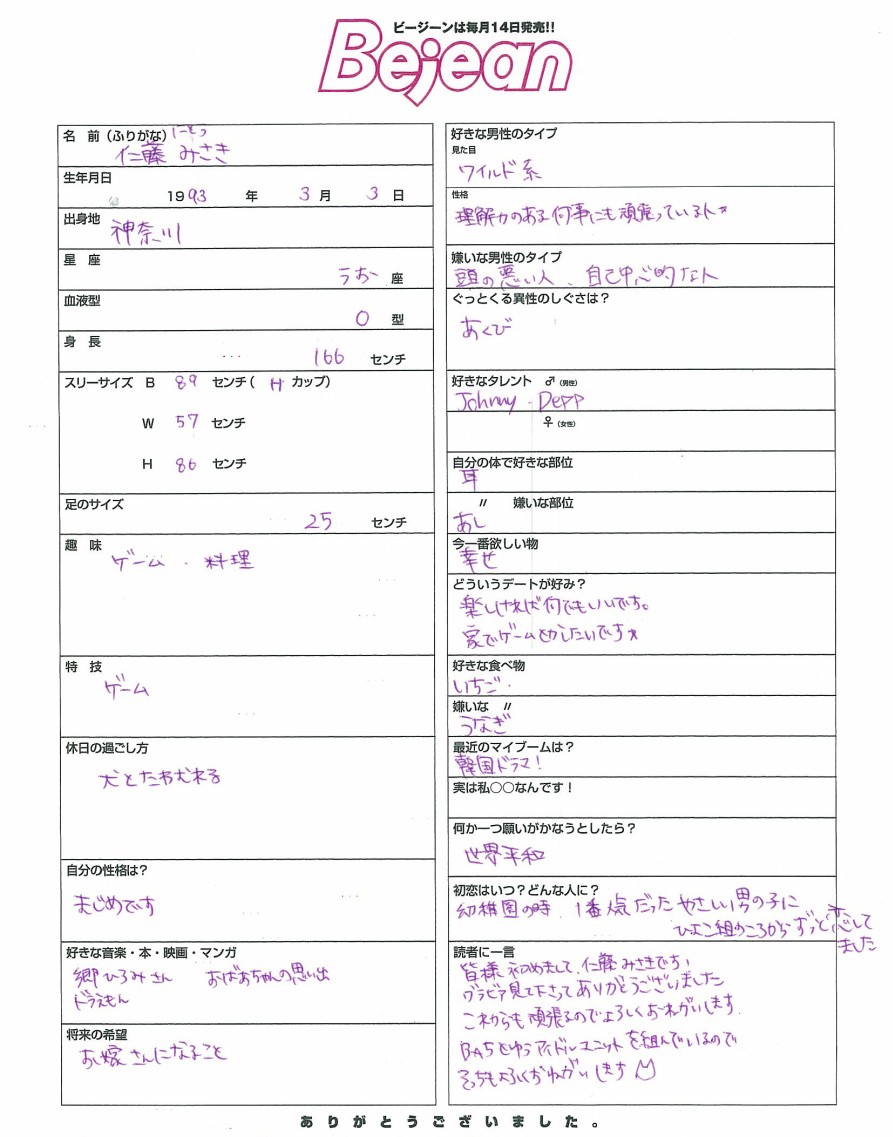 ビージーンは毎月14日発売!!
Bejean
名 前 (ふりがな) にとう
仁藤 みさき
生年月日
1993 年 3月 3日
出身地
神奈川
星 座
うお 座
血液型
O 型
身 長
166 センチ
スリーサイズ B 89 センチ( H カップ)
W 57 センチ
H 86 センチ
足のサイズ
25 センチ
趣 味
ゲーム . 料理
特 技
ゲーム
休日の過ごし方
犬とたわむれる
自分の性格は?
まじめです
好きな音楽・本・映画・マンガ
郷ひろみさん おばあちゃんの思い出
ドラえもん
将来の希望
お嫁さんになること
好きな男性のタイプ
見た目
ワイルド系
性格
理解力のある何事にも頑張っている人☆
嫌いな男性のタイプ
頭の悪い人、自己中心的な人
ぐっとくる異性のしぐさは?
あくび
好きなタレント ♂(男性)
Johnny . Depp
♀(女性)
自分の体で好きな部位
耳
〃 嫌いな部位
あし
今一番欲しい物
幸せ
どういうデートが好み?
楽しければ何でもいいです。
家でゲームとかしたいです☆
好きな食べ物
いちご.
嫌いな 〃
うなぎ
最近のマイブームは?
韓国ドラマ!
実は私○○なんです!
何か一つ願いがかなうとしたら?
世界平和
初恋はいつ?どんな人に?
幼稚園の時、1番人気だったやさしい男の子に
ひよこ組のころからずっと恋して
ました
読者に一言
皆様初めまして、仁藤みさきです!
グラビア見て下さってありがとうございました
これからも頑張るのでよろしくおねがいします.
BA5とゆうアイドルユニットを組んでいるので
そっちもよろしくおねがいします
ありがとうございました。